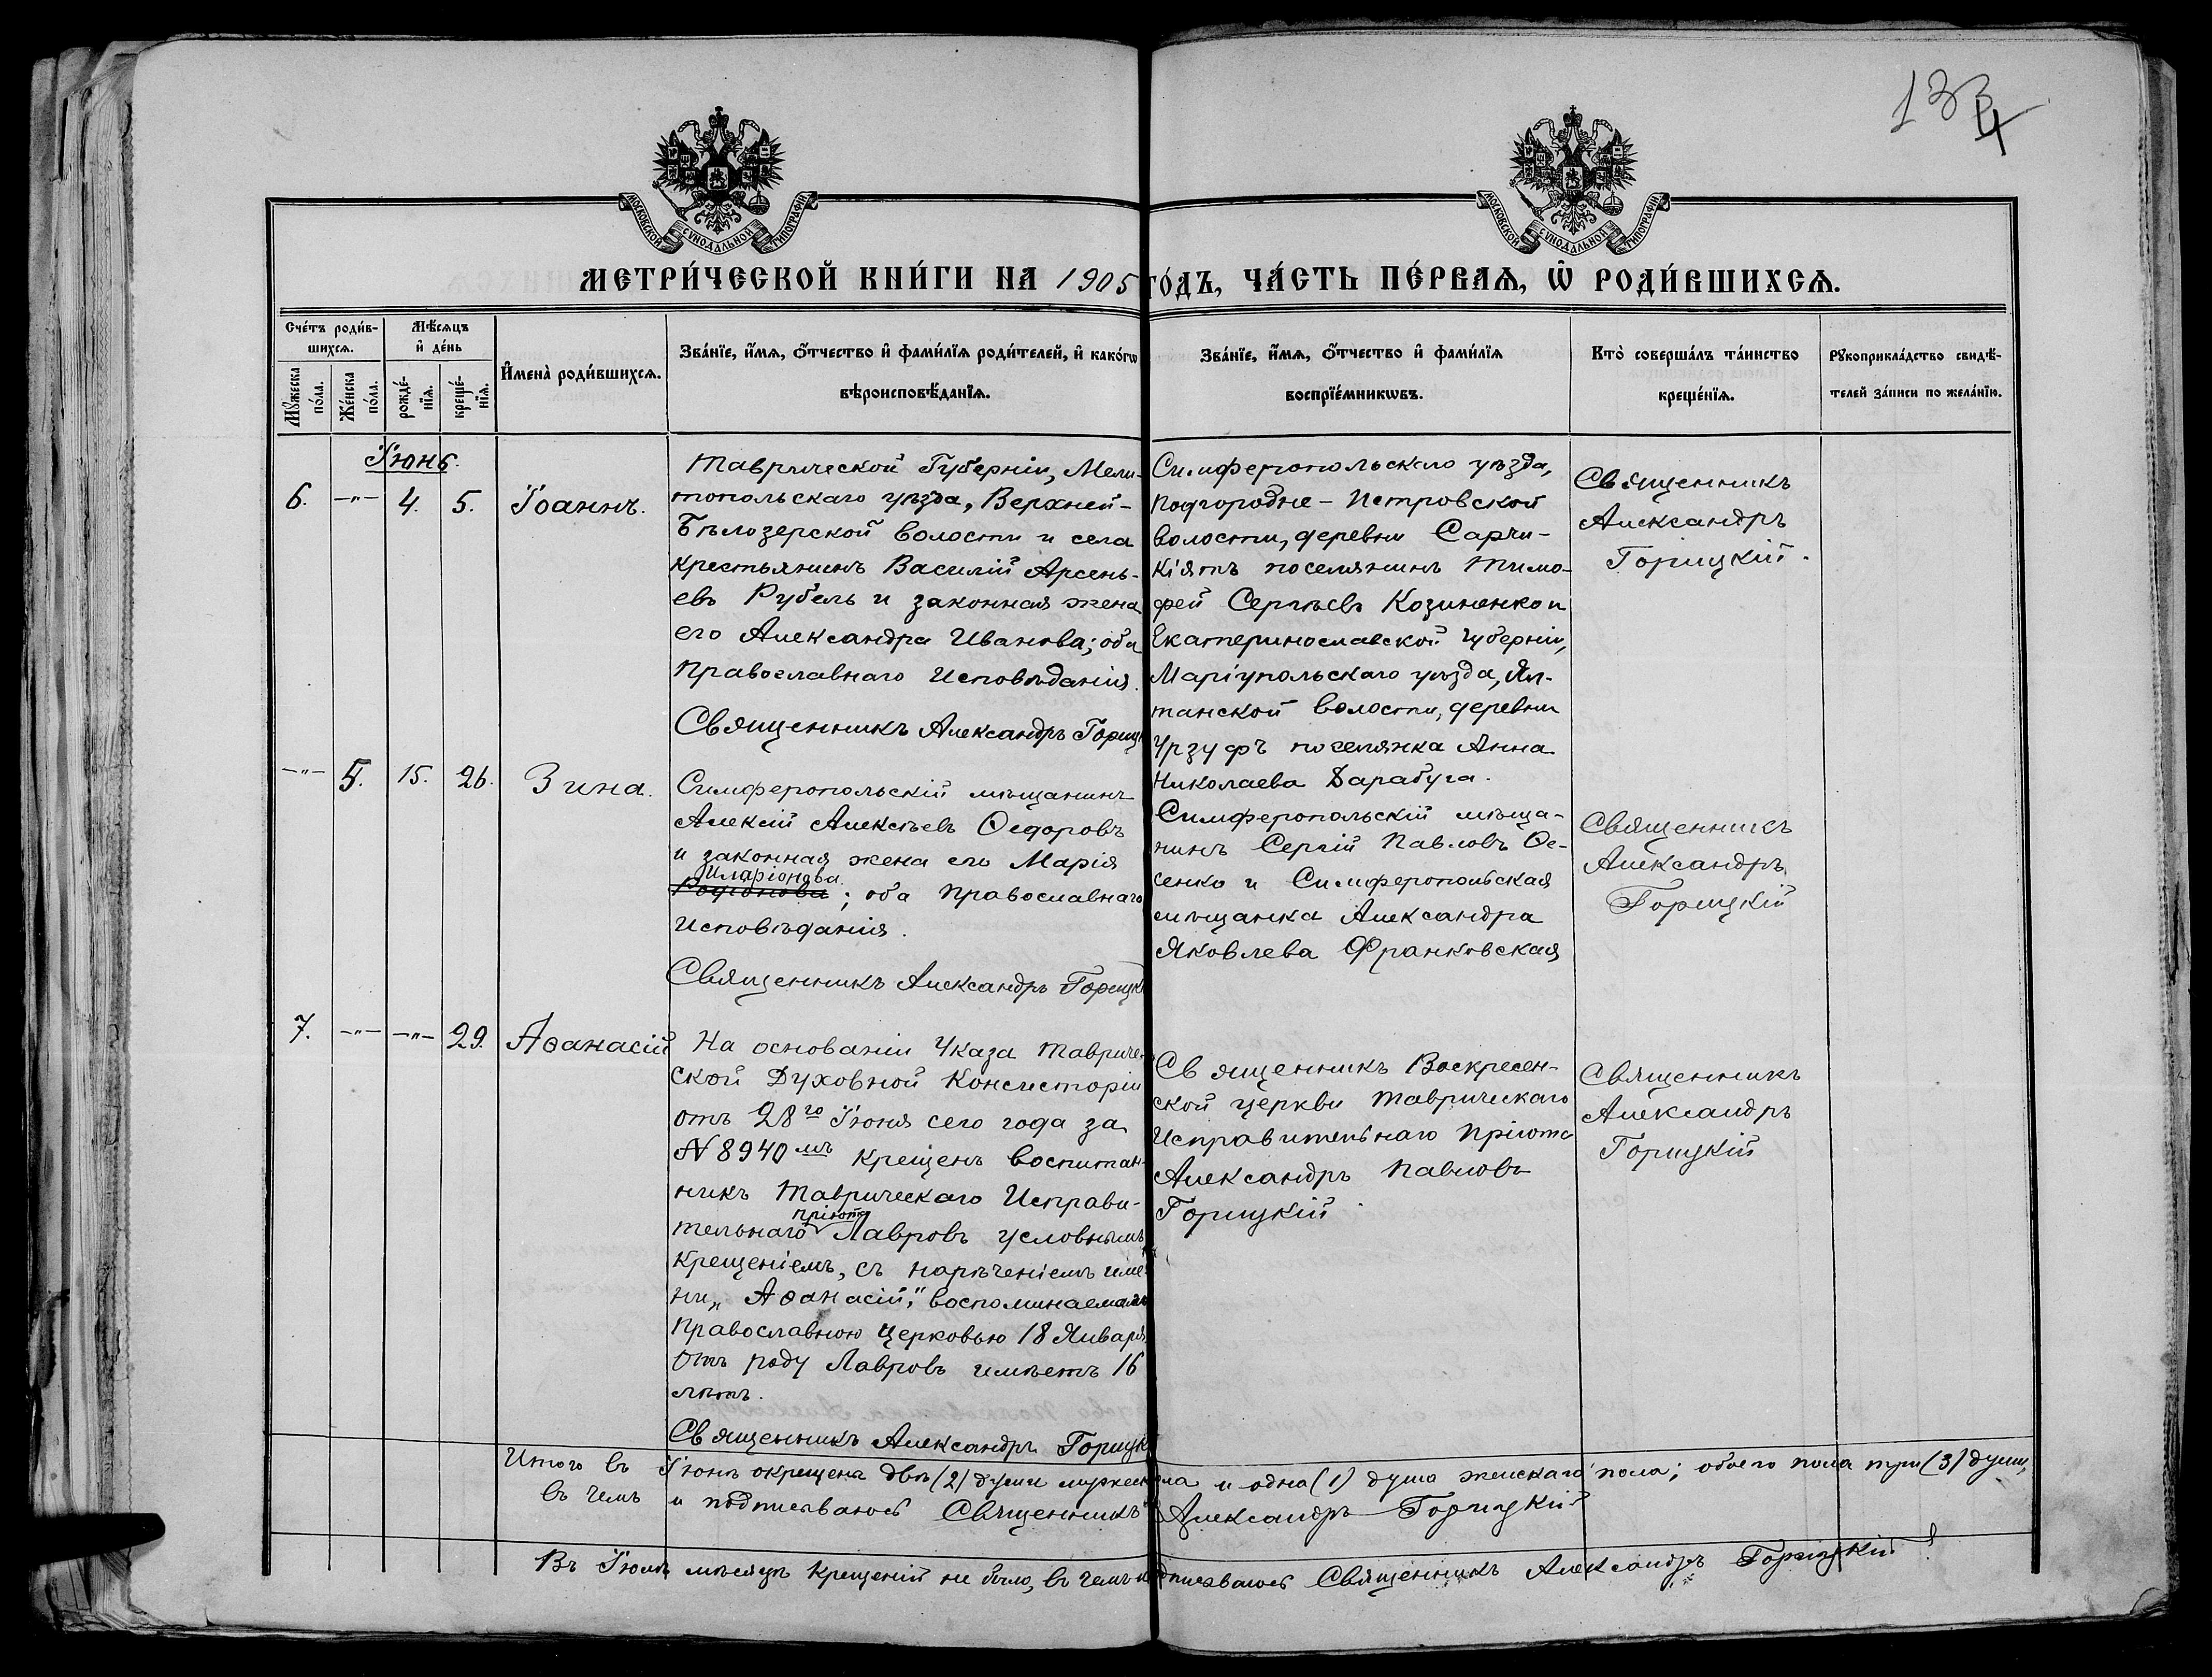 134
МОСКОВСКОЙ СѴНОДАЛЬНОЙ ТИПОГРАФІИ
МОСКОВСКОЙ СѴНОДАЛЬНОЙ ТИПОГРАФІИ
МЕТРИ́ЧЕСКОЙ КНИ́ГИ НА 1905 ГО́ДЪ, ЧА́СТЬ ПЕ́РВАѦ, Ѡ҆ РОДИ́ВШИХСѦ.
Сче́тъ роди́в-
шихсѧ.
Мѣ́сѧцъ
и҆ де́нь
Мꙋ́жеска
по́ла.
Же́нска
по́ла.
рожде́-
нїѧ.
креще́-
нїѧ.
И҆мена̀ роди́вшихсѧ.
Зва́нїе, и҆́мѧ, ѻ҆́тчество и҆ фами́лїѧ роди́телей, и҆ како́гѡ
вѣроисповѣ́данїѧ.
Зва́нїе, и҆́мѧ, ѻ҆́тчество и҆ фами́лїѧ
воспрїе́мникѡвъ.
Кто̀ соверша́лъ та́инство
креще́нїѧ.
Рꙋкоприкла́дство свидѣ́-
телей за́писи по жела́нїю.
Іюнь.
6. -"- 4. 5. Іоаннъ.
Таврической Губерніи, Мели-
топольскаго уѣзда, Верхней-
Бѣлозерской волости и села
крестьянинъ Василій Арсень-
евъ Рубель и законная жена
его Александра Иванова; оба
Православнаго Исповѣданія.
Священникъ Александръ Гориц
Симферопольскаго уѣзда,
Подгородне-Петровской
волости, деревни Сарчи-
Кіятъ поселянинъ Тимо-
фей Сергѣевъ Козиненко и
Екатеринославской губерніи,
Маріупольскаго уѣзда, Ял-
танской волости, деревни
Урзуфъ поселянка Анна
Николаева Дарабуга.
Священникъ
Александръ
Горицкій.
-"- 5. 15. 26. Зина.
Симферопольскій мѣщанинъ
Алексій Алексѣевъ Ѳедоровъ
и законная жена его Марія
Иларіонова
Родіонова; оба Православнаго
Исповѣданія.
Священникъ Александръ Горицк
Симферопольскій мѣща-
нинъ Сергій Павловъ Ѳе-
сенко и Симферопольская
мѣщанка Александра
Яковлева Франковская
Священникъ
Александръ
Горицкій
7. -"- -"- 29. Аѳанасій
На основаніи Указа Тавриче-
ской Духовной Консисторіи
отъ 28го Іюня сего года за
№ 8940мъ крещенъ воспитан-
никъ Таврическаго Исправи-
пріюта
тельнаго Лавровъ условнымъ
крещеніемъ, съ нареченіемъ име-
ни „Аѳанасій," воспоминаемаго
Православною Церковью 18 Января
Отъ роду Лавровъ имѣетъ 16
лѣтъ.
Священникъ Александръ Горицк
Священникъ Воскресен-
ской церкви Таврическаго
Исправительнаго Пріюта
Александръ Павловъ
Горицкій.
Священникъ
Александръ
Горицкій
Итого въ Іюнѣ окрещена двѣ (2) души мужеск пола и одна (1) душа женскаго пола; обоего пола три (3) души,
въ чемъ и подписываюсь Священникъ Александръ Горицкій
Въ Іюлѣ мѣсяцѣ Крещеній не было, въ чемъ и подписываюсь Священникъ Александръ Горицкій